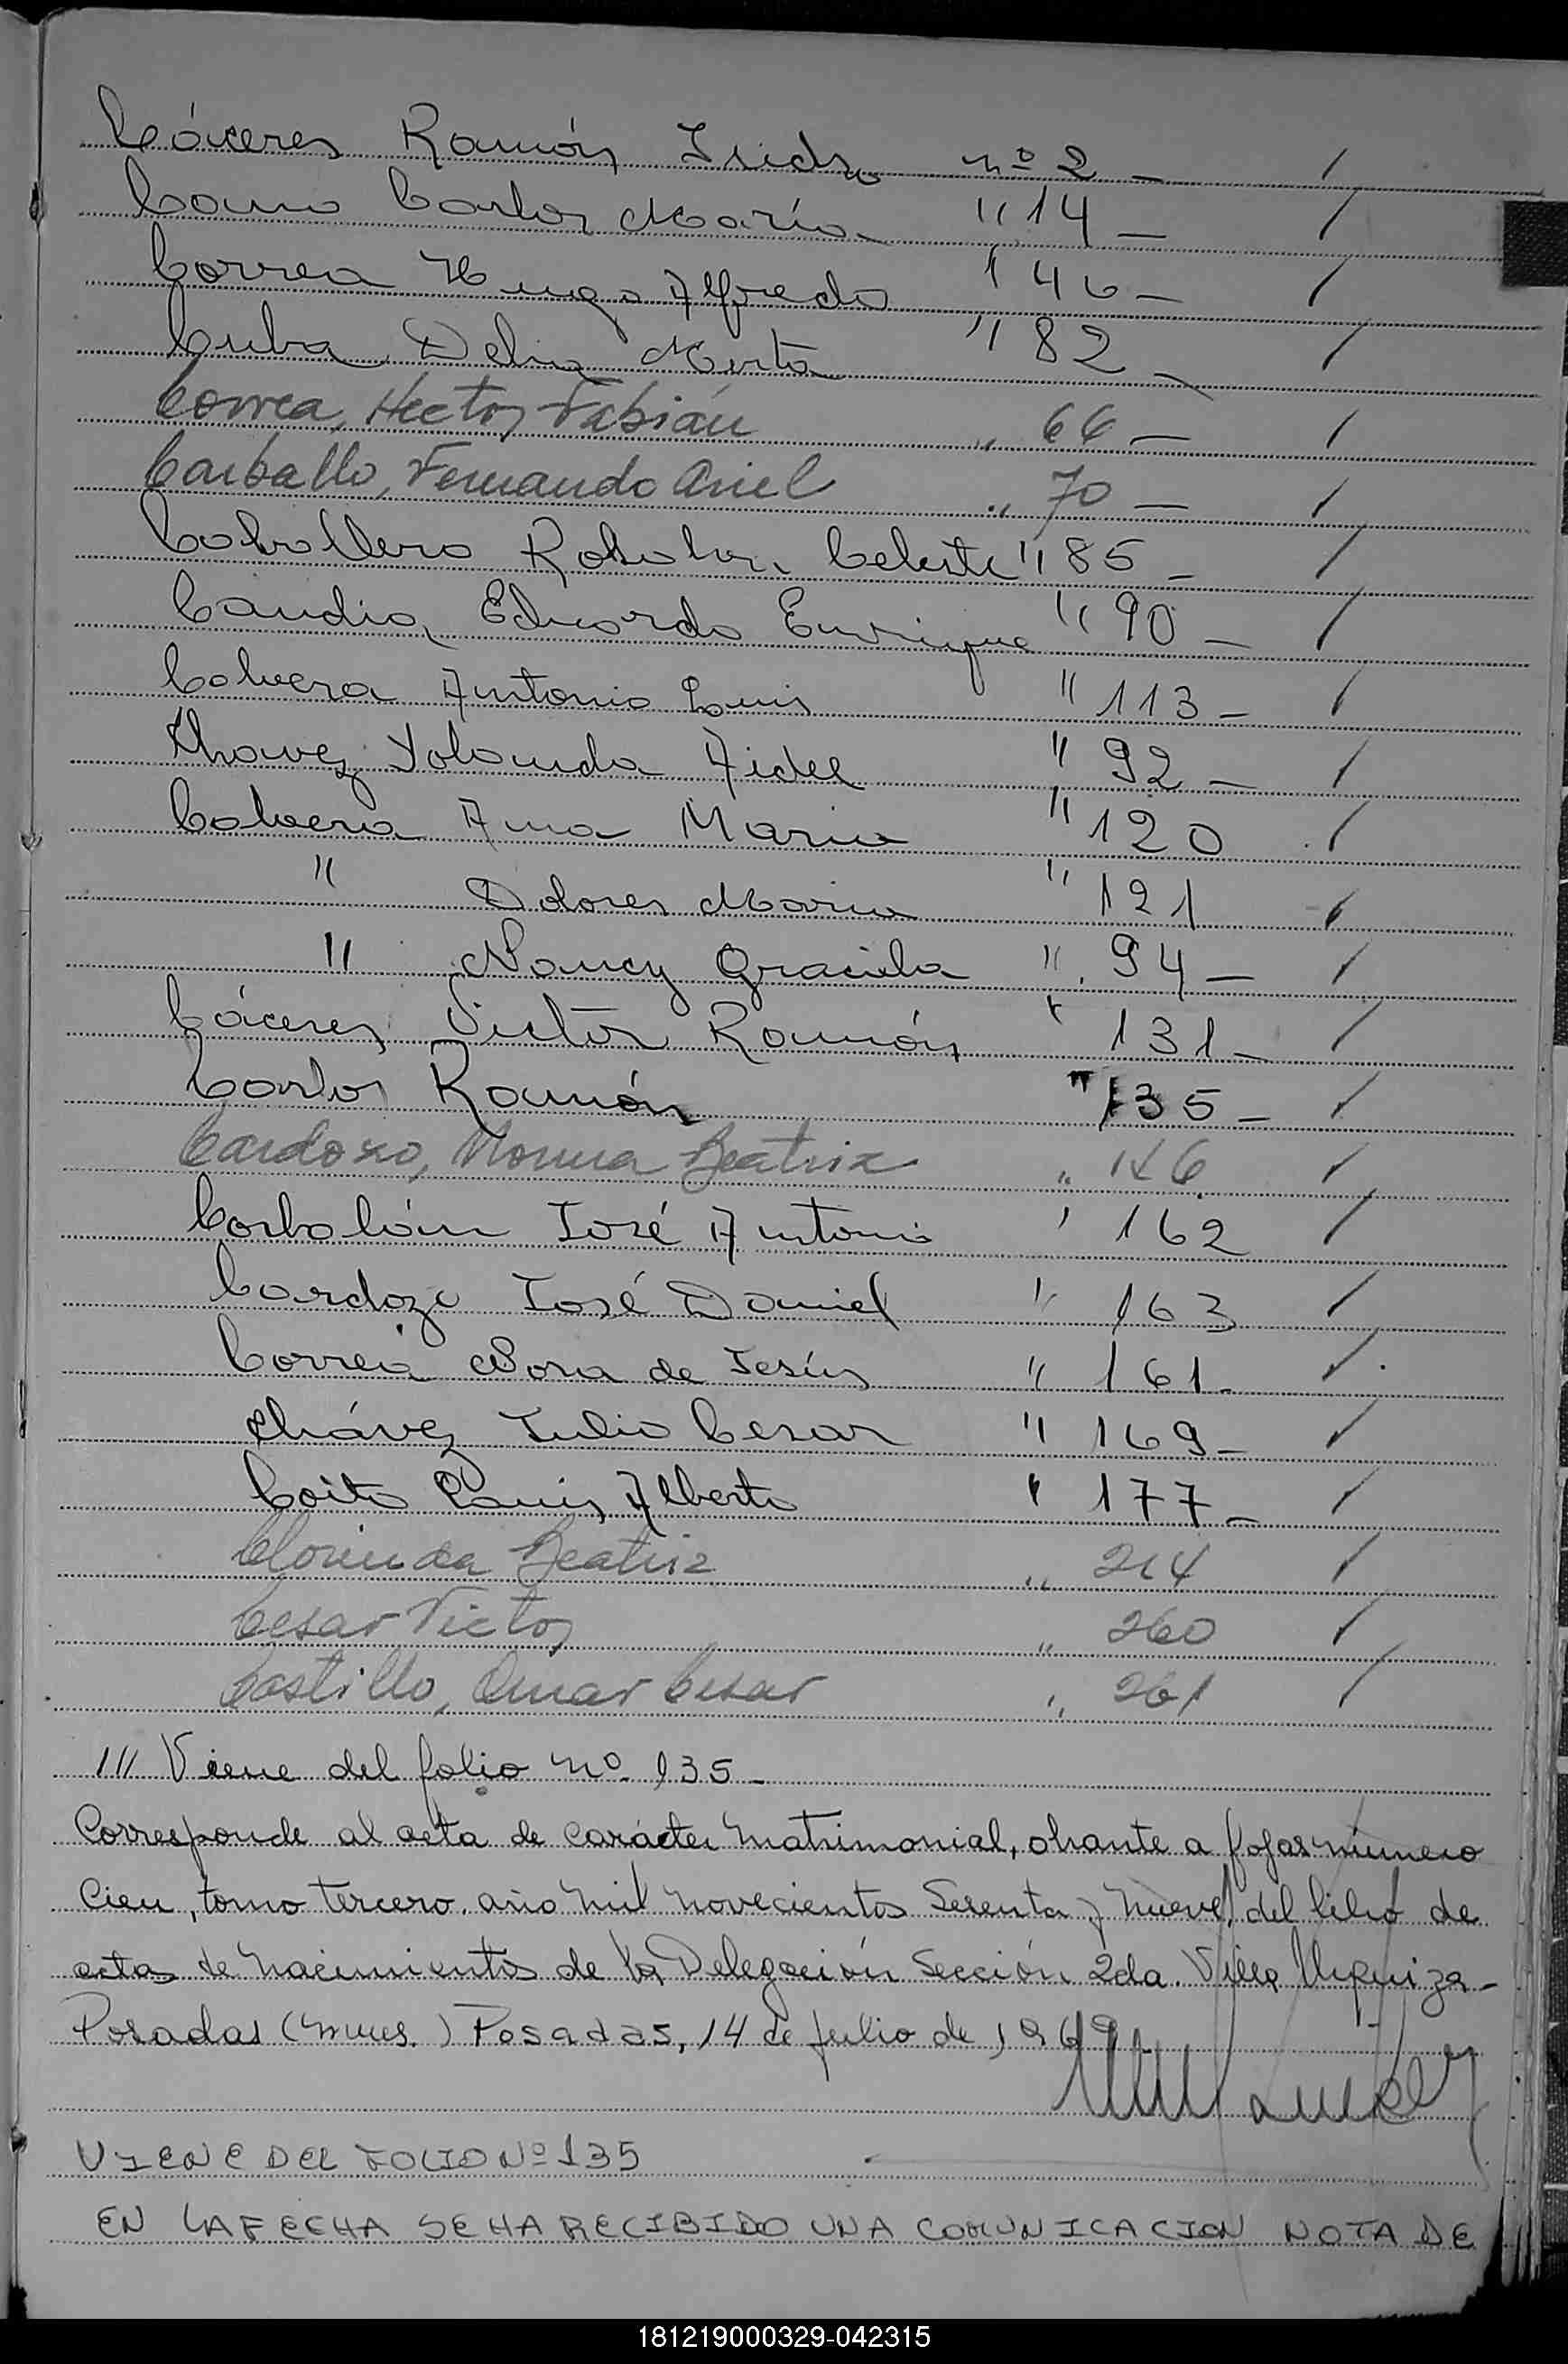 Cáceres Ramón Isidro nº 2 - /
Cano Carlos María " 14 - /
Correa Hugo Alfredo " 46 - /
Cuba Delia Mirta " 82 - /
Correa, Hector Fabián " 66 - /
Carballo, Fernando Ariel " 70 - /
Caballero Rosalia Celeste " 85 - /
Candia Eduardo Enrique " 90 - /
Cabrera Antonio Luis " 113 - /
Chavez Yolanda Aidee " 92 - /
Cabrera Ana Maria " 120 /
" Dolores Maria " 121 /
" Nancy Graciela " 94 - /
Cáceres Victor Ramón " 131 - /
Carlos Ramón " 135 - /
Cardozo, Norma Beatriz " 146 /
Corbalán José Antonio " 162 /
Cardozo José Daniel " 163 /
Correa Nora de Jesús " 161 - /
Chávez Julio Cesar " 169 - /
Coito Luis Alberto " 177 - /
Clorinda Beatriz " 214 /
Cesar Victor " 260 /
Castillo, Omar Cesar " 261 /
/// Viene del folio nº 135 -
Corresponde al acta de carácter matrimonial, obrante a fojas número
Cien, tomo tercero. año mil novecientos sesenta y nueve, del libro de
actas de nacimientos de la Delegación Sección 2da. Villa Urquiza -
Posadas (Mnes.) Posadas, 14 de julio de 1969
VIENE DEL FOLIO Nº 135
EN LA FECHA SE HA RECIBIDO UNA COMUNICACION NOTA DE
181219000329-042315